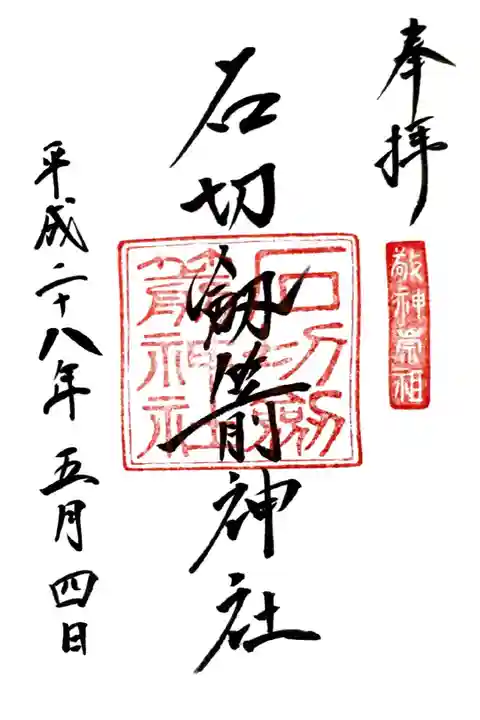 奉拝
敬神崇祖
石切劔箭神社
石切劔
箭神社
平成二十八年五月四日